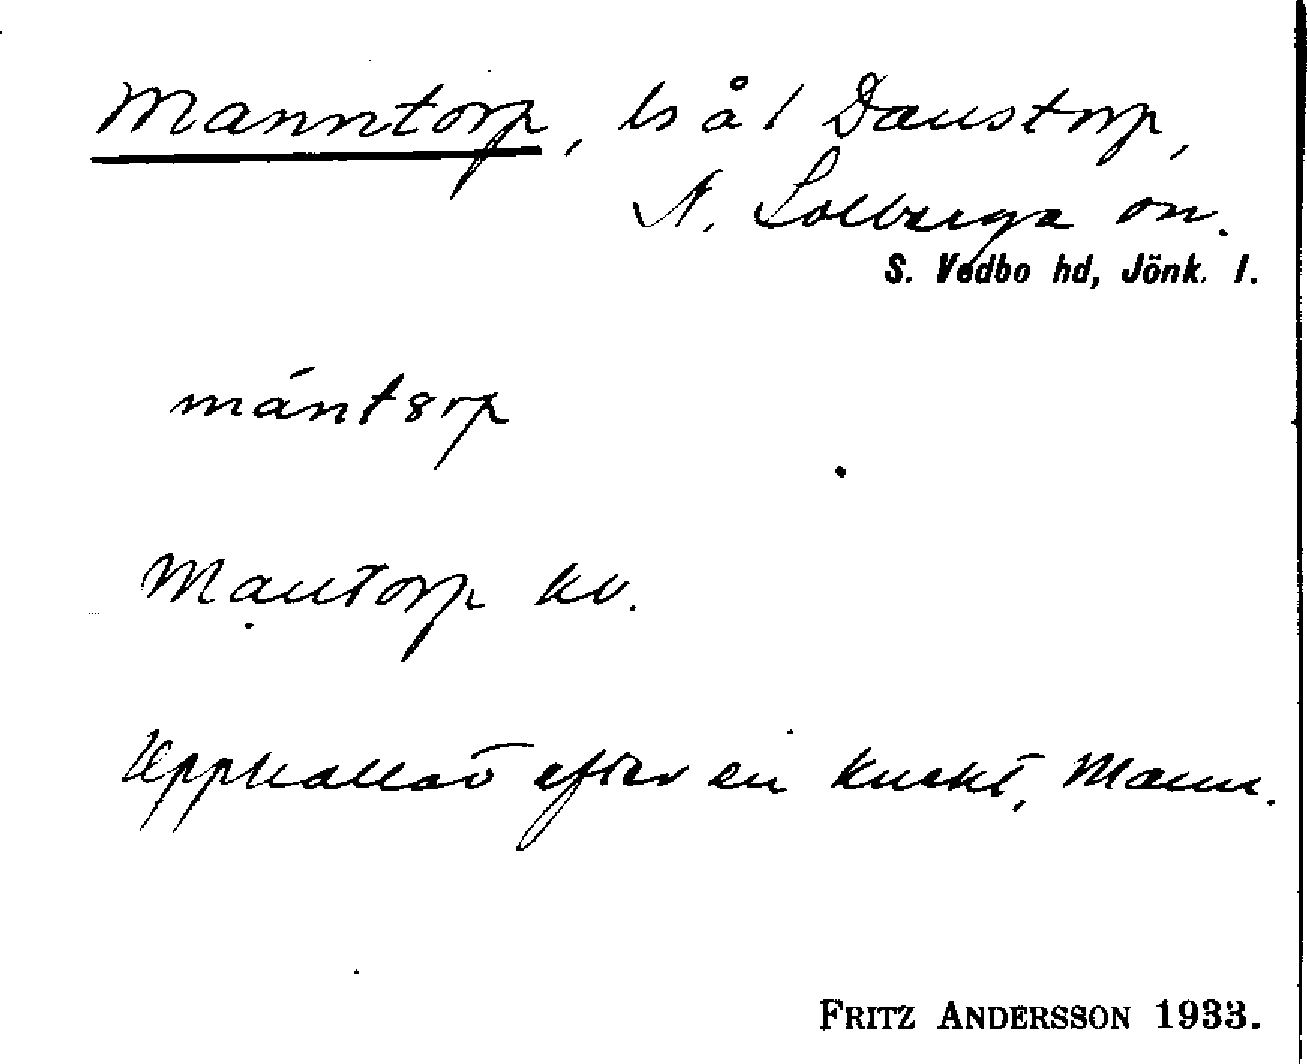 Manntorp, ls å / Danstorp,
N. Solberga sn.
S. Vedbo hd, Jönk. l.
mántȣrp
Mantorp kv.
Uppkallad efter en knekt, Mann.
FRITZ ANDERSSON 1933.